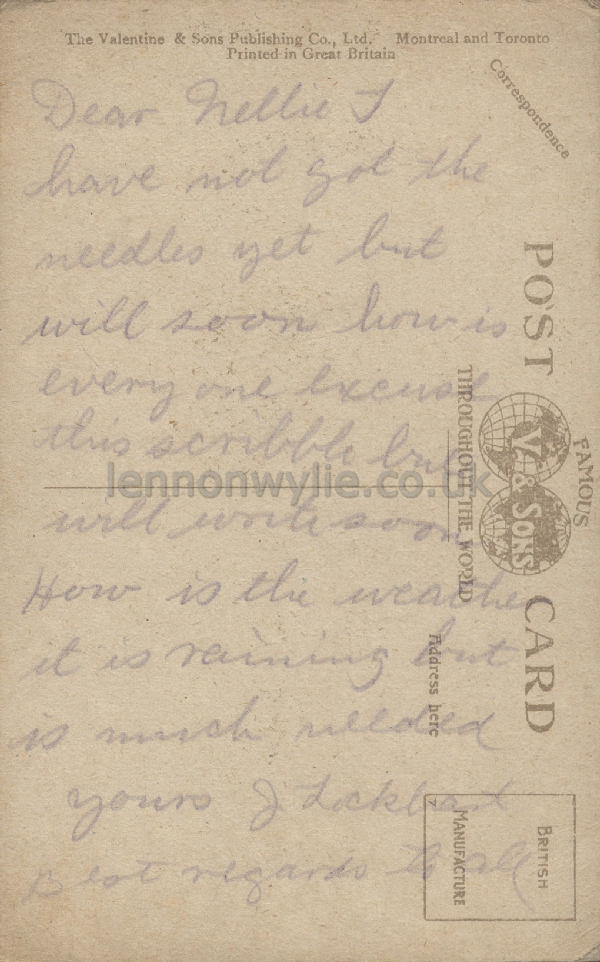 The Valentine & Sons Publishing Co., Ltd. Montreal and Toronto
Printed in Great Britain
Correspondence
Dear Nellie I
have not got the
needles yet but
will soon how is
every one excuse
this scribble but
will write soon
How is the weather
it is raining but
is much needed
yours J Lockhart
Best regards to all
POST CARD
FAMOUS
V. & SONS
THROUGHOUT THE WORLD
Address here
BRITISH
MANUFACTURE
lennonwylie.co.uk